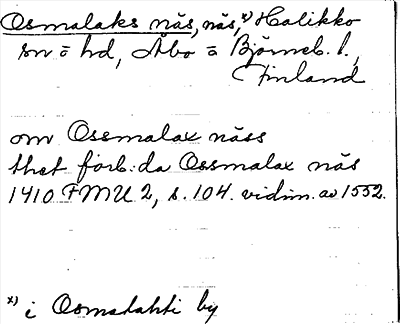 Osmalaks näs, näs,ˣ⁾ Halikko
sn o hd, Åbo o Björneb. l.,
Finland
om Ossmalax näss
thet förb:da Ossmalax näs
1410 FMU 2, s. 104. vidim. av 1552.
ˣ⁾ i Osmalahti by